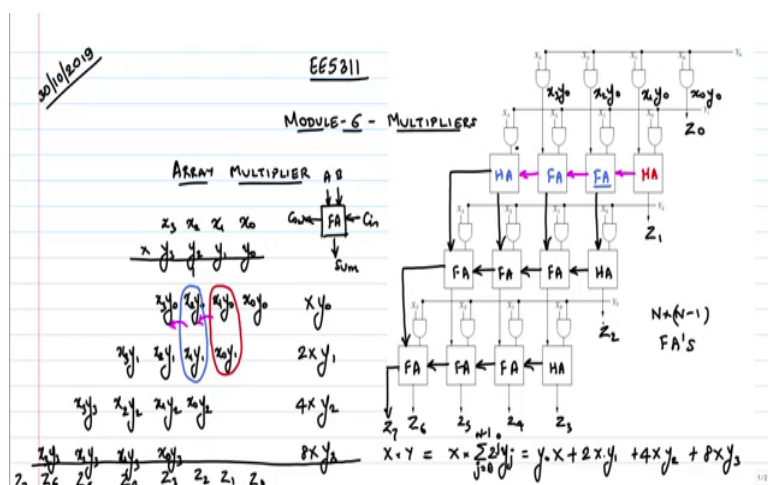 30/10/2019
EE5311
MODULE-6 - MULTIPLIERS
ARRAY MULTIPLIER
A B
FA
Cin
Sum
x3 x2 x1 x0
x y3 y2 y1 y0
x3y0 x2y0 x1y0 x0y0 xy0
x3y1 x2y1 x1y1 x0y1 2xy1
x2y2 x1y2 x0y2 4xy2
x2y3 x1y3 x0y3 8xy3
Z2 Z1
x3y0 x2y0 x1y0 x0y0
Z0
HA FA FA HA
Z1
FA FA FA HA
Z2
FA FA FA HA
Z7 Z6 Z5 Z4 Z3
N×(N-1)
FA'S
X·Y = X × Σ 2^j yj = y0 X + 2X·y1 + 4X y2 + 8X y3
N-1
j=0
1/2